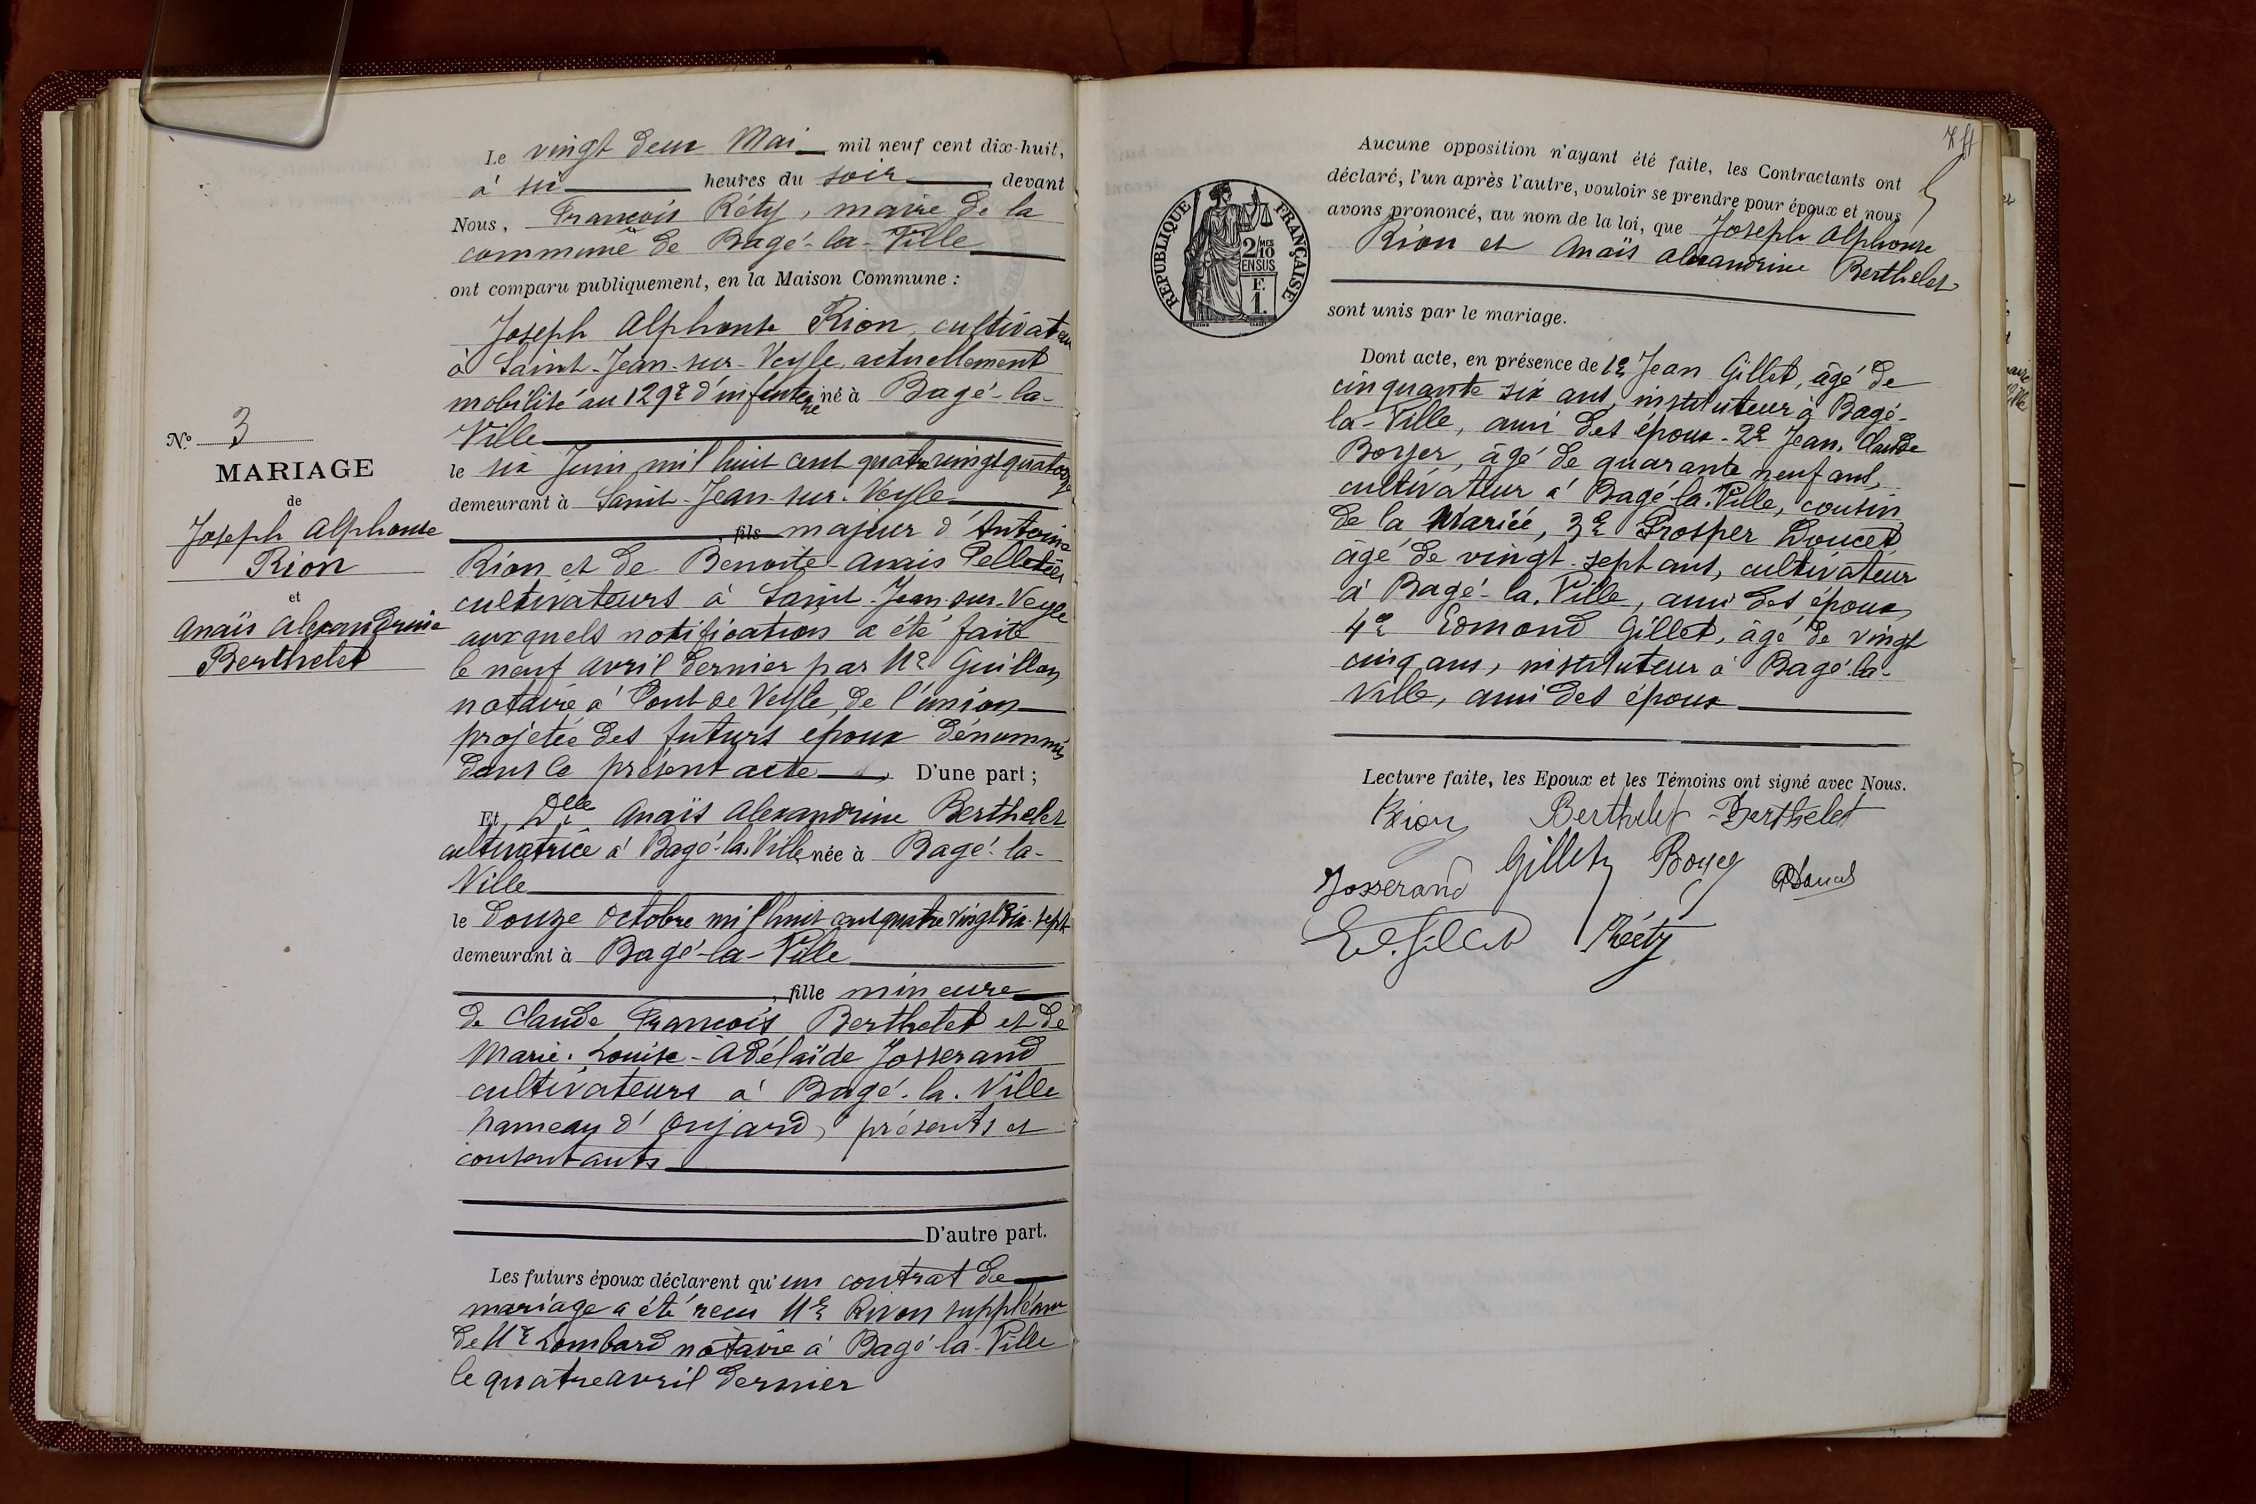 Le vingt deux Mai mil neuf cent dix-huit,
à six heures du soir devant
Nous, François Réty, maire de la
commune de Bagé-la-Ville
ont comparu publiquement, en la Maison Commune :
Joseph Alphonse Rion, cultivateur
à Saint-Jean-sur-Veyle, actuellement
mobilisé au 129e d'infanterie né à Bagé-la-
Ville
le six Juin mil huit cent quatre vingt quatorze
demeurant à Saint-Jean-sur-Veyle
, fils majeur d'Antoine
Rion et de Benoite-Anais Pelletier
cultivateurs à Saint-Jean-sur-Veyle
auxquels notification a été faite
le neuf avril dernier par Me Guillon
notaire à Pont de Veyle, de l'union
projetée des futurs époux dénommés
dans le présent acte D'une part ;
No 3
MARIAGE
de
Joseph Alphonse
Rion
et
Anaïs Alexandrine
Berthelet
Et Dlle Anaïs Alexandrine Berthelet
cultivatrice à Bagé-la-Ville née à Bagé-la-
Ville
le douze octobre mil huit cent quatre vingt dix-sept
demeurant à Bagé-la-Ville
, fille mineure
de Claude François Berthelet et de
Marie-Louise-Adélaïde Josserand
cultivateurs à Bagé-la-Ville
hameau d'Onjard, présents et
consentants
D'autre part.
Les futurs époux déclarent qu'un contrat de
mariage a été reçu Me Rivon suppléant
de Me Lombard notaire à Bagé-la-Ville
le quatre avril dernier
RÉPUBLIQUE FRANÇAISE
2/10MES
EN SUS
F.
1.
Aucune opposition n'ayant été faite, les Contractants ont
déclaré, l'un après l'autre, vouloir se prendre pour époux et nous
avons prononcé, au nom de la loi, que Joseph Alphonse
Rion et Anaïs Alexandrine Berthelet
sont unis par le mariage.
Dont acte, en présence de 1e Jean Gillet, âgé de
cinquante six ans, instituteur à Bagé-
la-Ville, ami des époux - 2e Jean-Claude
Boyer, âgé de quarante neuf ans,
cultivateur à Bagé-la-Ville, cousin
de la Mariée, 3e Prosper Doucet
âgé de vingt-sept ans, cultivateur
à Bagé-la-Ville, ami des époux,
4e Edmond Gillet, âgé de vingt
cinq ans, instituteur à Bagé-la-
Ville, ami des époux
Lecture faite, les Epoux et les Témoins ont signé avec Nous.
Rion Berthelet Berthelet
Josserand Gillet Boyer
Ed. Gillet Réty